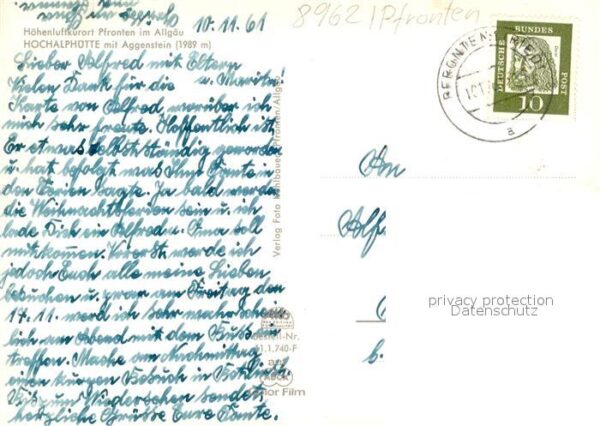 10.11.61
8962 / Pfronten
Höhenluftkurort Pfronten im Allgäu
HOCHALPHÜTTE mit Aggenstein (1989 m)
Lieber Alfred mit Eltern
Vielen Dank für die u. Moritz.
Karte von Alfred worüber ich
mich sehr freute. Hoffentlich ist
Er etwas selbstständig geworden
u. hat befolgt was Ihm Tante in
den Ferien sagte. Ja bald werden
die Weihnachtsferien sein u. ich
lade Dich ein Alfred u. Oma soll
mitkommen. Vorerst werde ich
jedoch Euch alle meine Lieben
besuchen u. zwar am Freitag den
17.11. werd ich sehr wahrschein
lich am Abend mit dem Bus ein
treffen. Mache am Nachmittag
einen kurzen Besuch in
Bis zum Wiedersehen sendet
herzliche Grüsse Eure Tante.
Verlag Foto Pfronten/Allgäu
Bestell-Nr.
1.1.740-F
Color Film
PFRONTEN-RIED
a
DEUTSCHE BUNDES POST
10
An
Alf
b.
privacy protection
Datenschutz